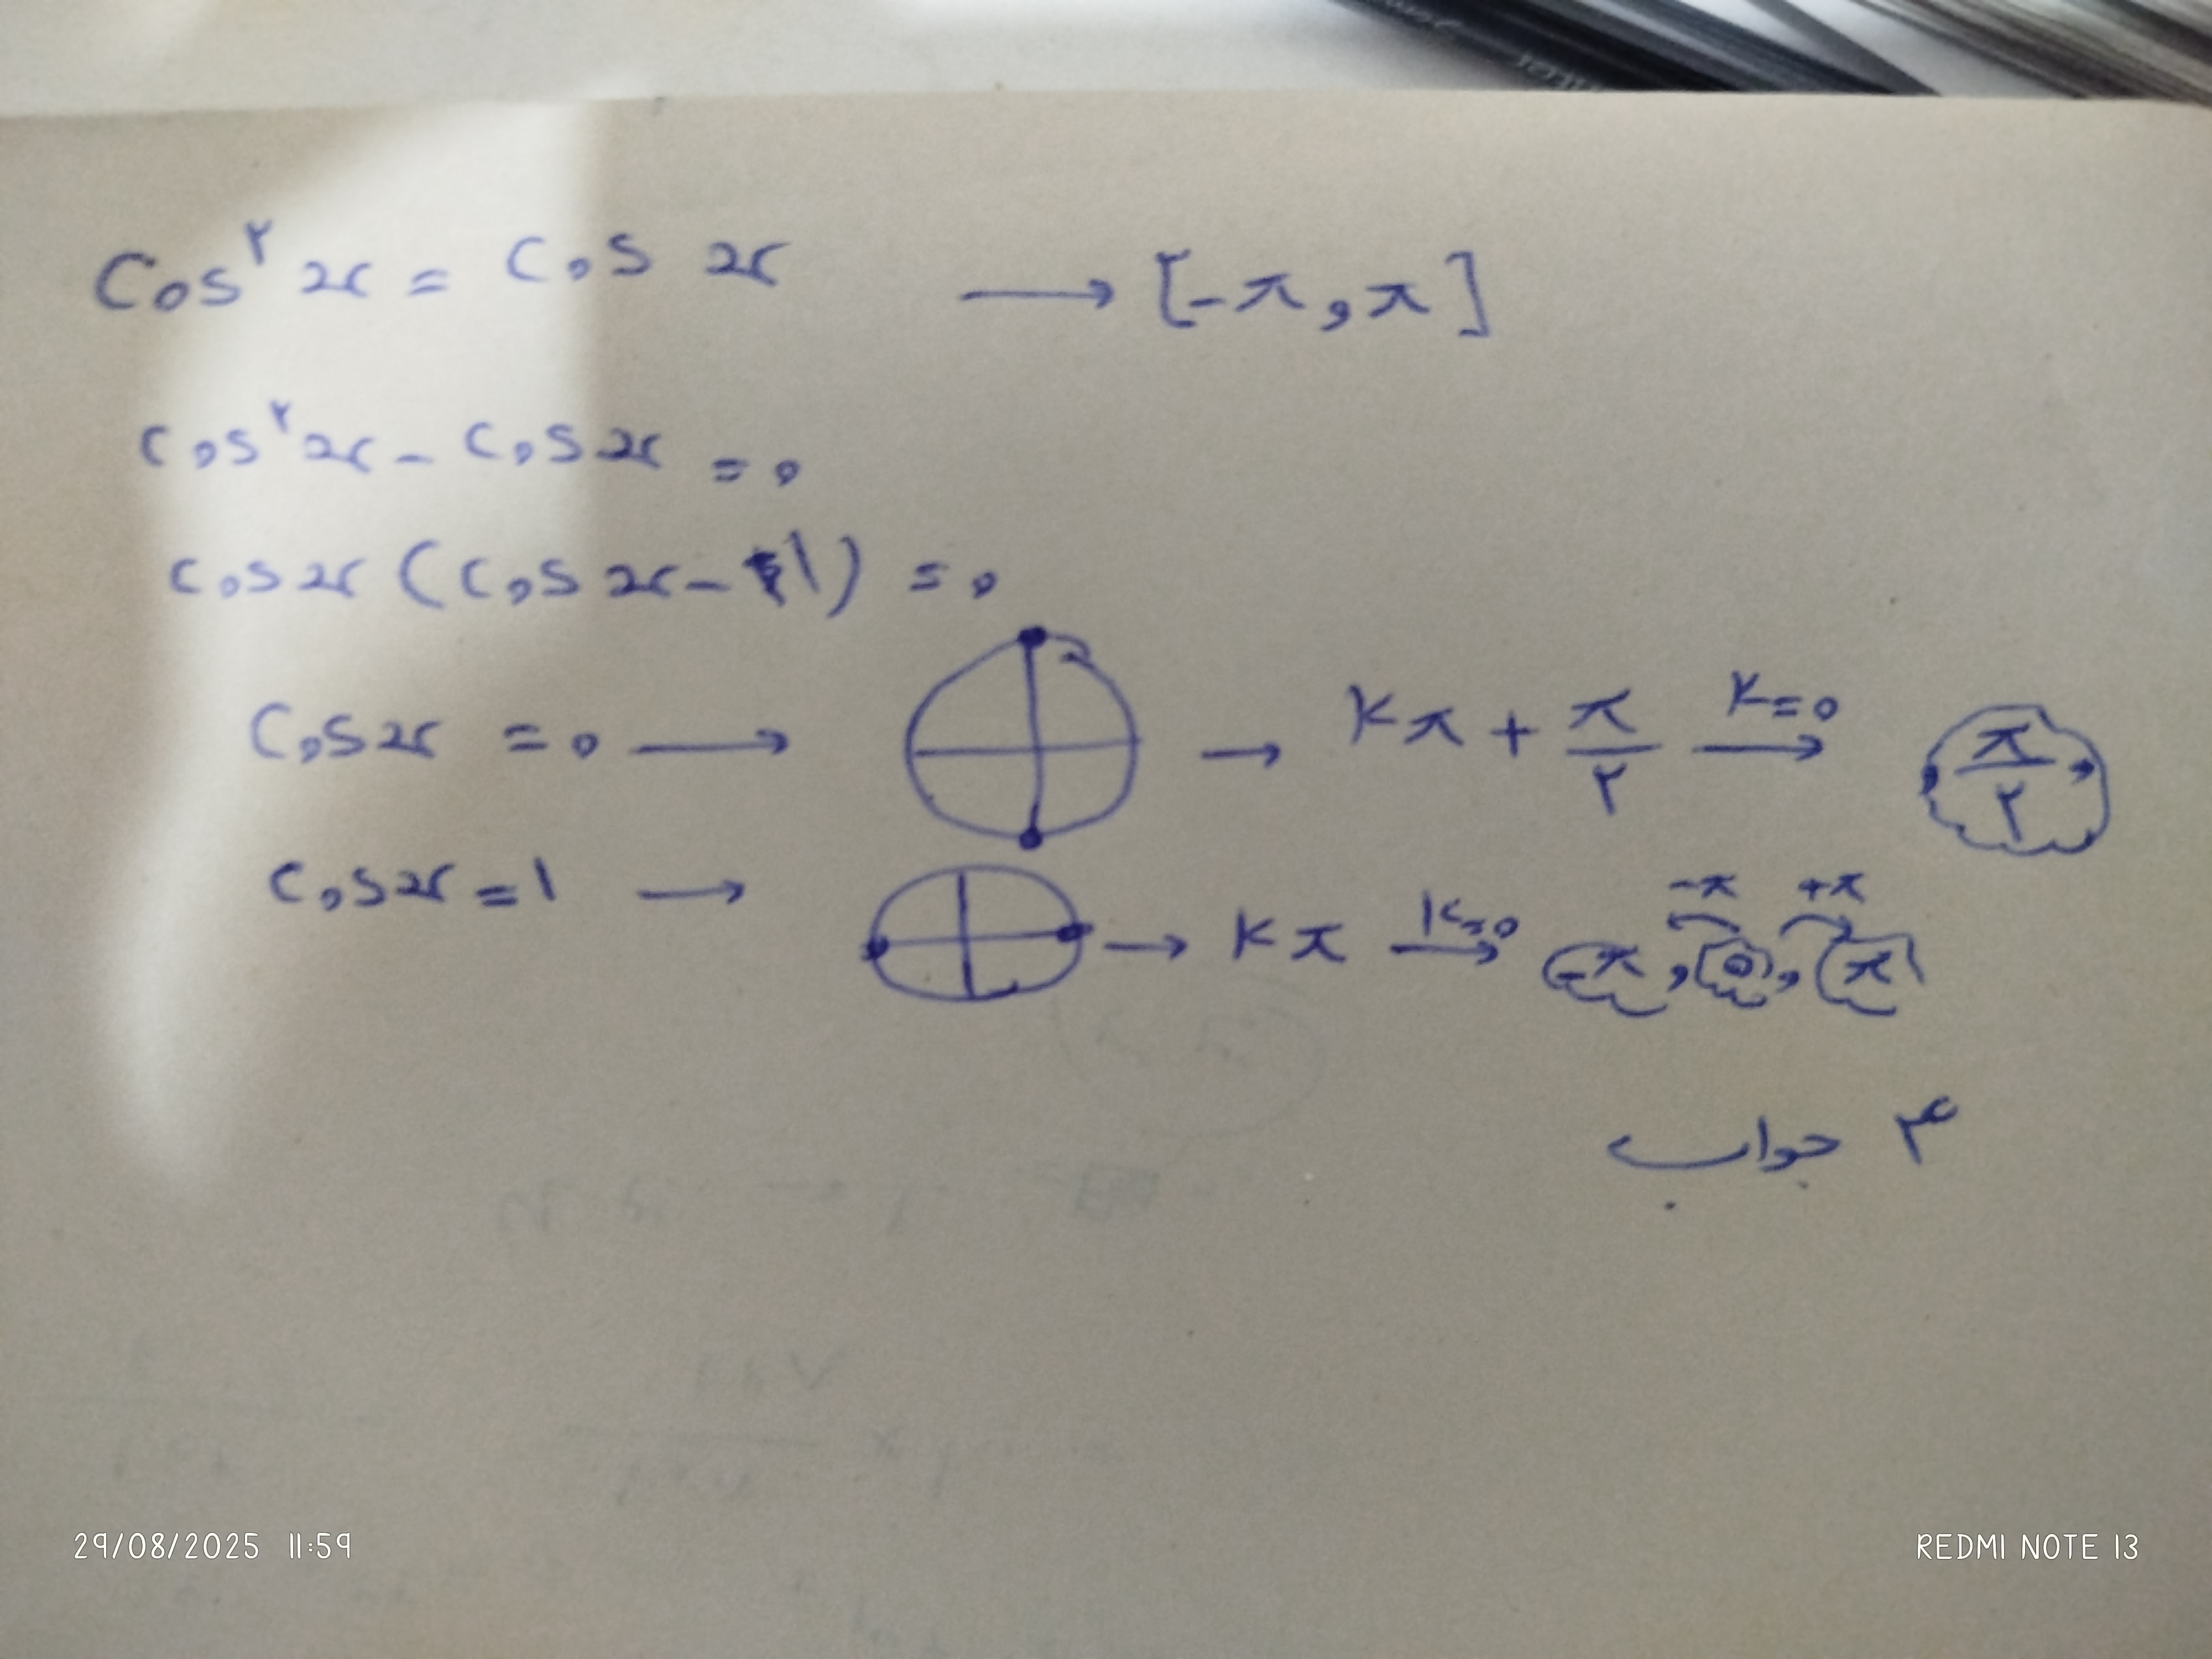 Cos² x = Cos x → [-π, π]
Cos² x - Cos x = ۰
Cos x (Cos x - ۱) = ۰
Cos x = ۰ → → kπ + π/۲ k=۰ → π/۲
Cos x = ۱ → → kπ k=۰ → -π, ۰, π -π +π
۴ جواب
29/08/2025 11:59 REDMI NOTE 13